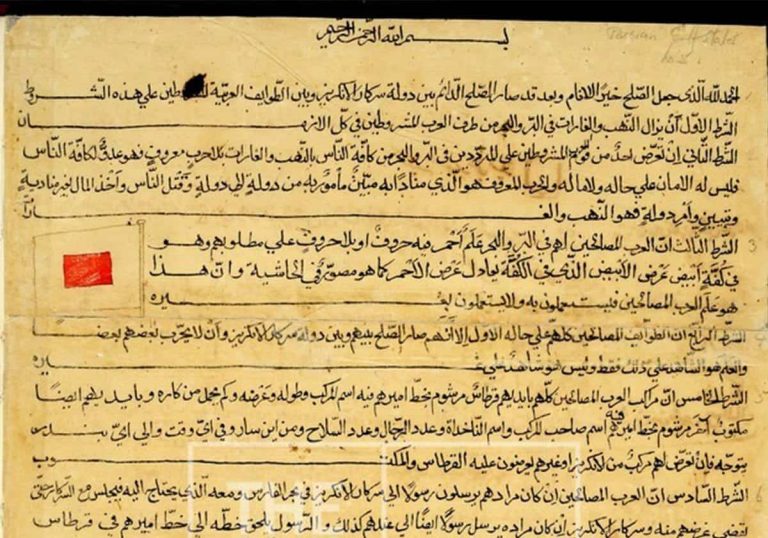 Persian Gulf States
بسم الله الرحمن الرحيم
الحمد لله الذي جعل الصلح خيرا للانام وبعد قد صار الصلح الدائم بين دولة سركار الانكريز وبين الطوايف العربية علي هذه الشروط
الشرط الاول ان يزال النهب والغارات في البر والبحر من طرف العرب المشروطين في كل الازمان
الشرط الثاني ان تعرض احد من قوم العرب المشروطين علي المترددين في البر والبحر من كافة الناس بالنهب والغارات بلا حرب معروف فهو عدو لكافة الناس
فليس له الامان علي حاله ولا ماله والحرب المعروف هو الذي منادا به مبين مأمور به من دولة الي دولة وقتل الناس وأخذ المال بغير مناديه
وتبيين وأمر دولة فهو النهب والغارات
الشرط الثالث ان العرب المصالحين لهم في البر والبحر علم أحمر فيه حروف او بلا حروف علي مطلوبهم وهو
في كفة أبيض عرض الابيض الذي في الكفة يعادل عرض الاحمر كما هو مصور في الحاشية وان هذا
هو علم العرب المصالحين فيستعملون به ولا يستعملون بغيره
الشرط الرابع ان الطوايف المصالحين كلهم علي حاله الاول الا أنهم صار الصلح بينهم وبين دولة سركار الانكريز وأن لا يحرب بعضهم بعض
والعلم هو الشاهد علي ذلك فقط وليس هو شاهد علي غيره
الشرط الخامس ان مراكب العرب المصالحين كلهم بايديهم قرطاس مرشوم بخط اميرهم فيه اسم المركب وطوله وعرضه وكم يحمل من كاره وبايديهم ايضا
مكتوب آخر مرشوم بخط اميرهم فيه اسم صاحب المركب واسم الناخداة وعدد الرجال وعدد السلاح ومن اين سار وفي اي وقت والي اي بندر
يتوجه فإن تعرض لهم مركب من الانكريز او غيرهم يورون عليه القرطاس والمكتوب
الشرط السادس ان العرب المصالحين ان كان مرادهم يرسلون رسولا الي سركار الانكريز في بحر الفارس ومعه الذي يحتاج اليه فيجلس مع السركار حتي
تقضي غرضهم منه وسركار الانكريز ان كان مراده يرسل رسولا ايضا الي عندهم كذلك والرسول يلحق خطه الي خط اميرهم في قرطاس
THE